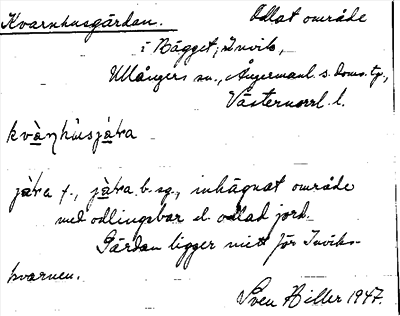 Kvarnhusgärdan. Odlat område
i Bägget, Invik,
Ullångers sn., Ångermanl. s. doms. tg.,
Västernorrl. l.
kvàṇhùsjàra
jàra f., jàra b. sg., inhägnat område
med odlingsbar el. odlad jord.
Gärdan ligger mitt för Inviks-
kvarnen.
Sven Hiller 1947.